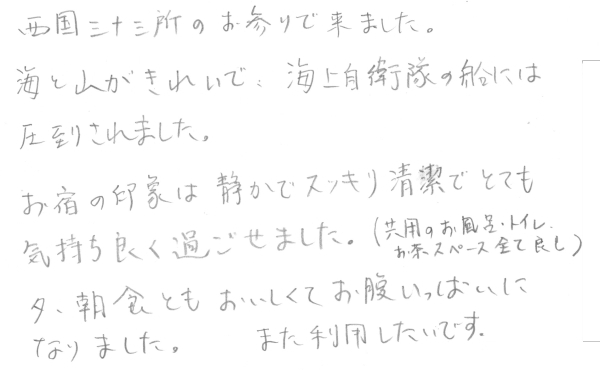 西国三十三所のお参りで来ました。
海と山がきれいで、海上自衛隊の船には
圧到されました。
お宿の印象は静かでスッキリ清潔でとても
気持ち良く過ごせました。(共用のお風呂・トイレ、
お茶スペース全て良し)
夕、朝食ともおいしくてお腹いっぱいに
なりました。 また利用したいです.